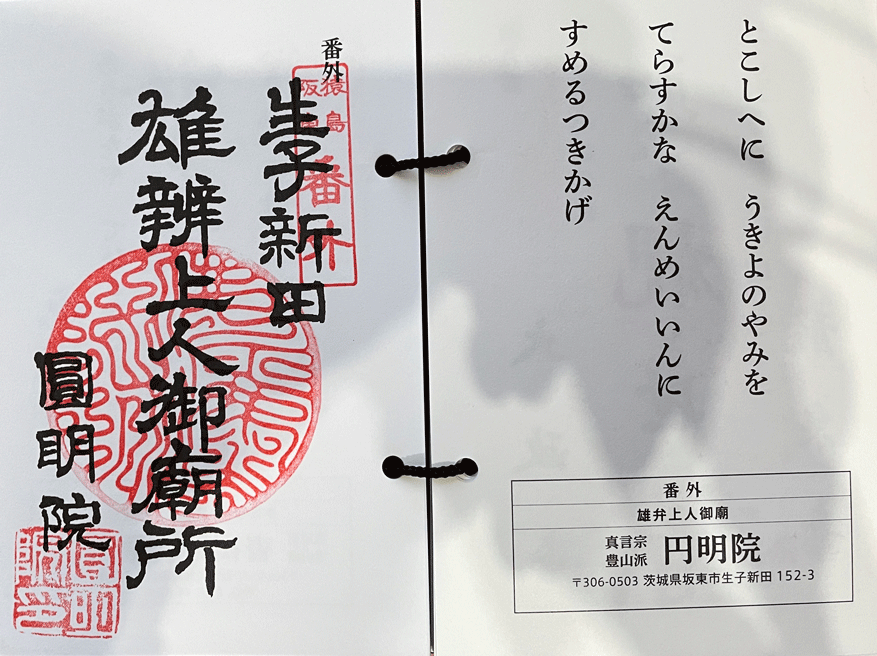 とこしへに　うきよのやみを
てらすかな　えんめいいんに
すめるつきかげ
番外
雄弁上人御廟
真言宗
豊山派
円明院
〒306-0503 茨城県坂東市生子新田 152-3
番外
猿島
阪東
番外
生子新田
雄辨上人御廟所
圓明院